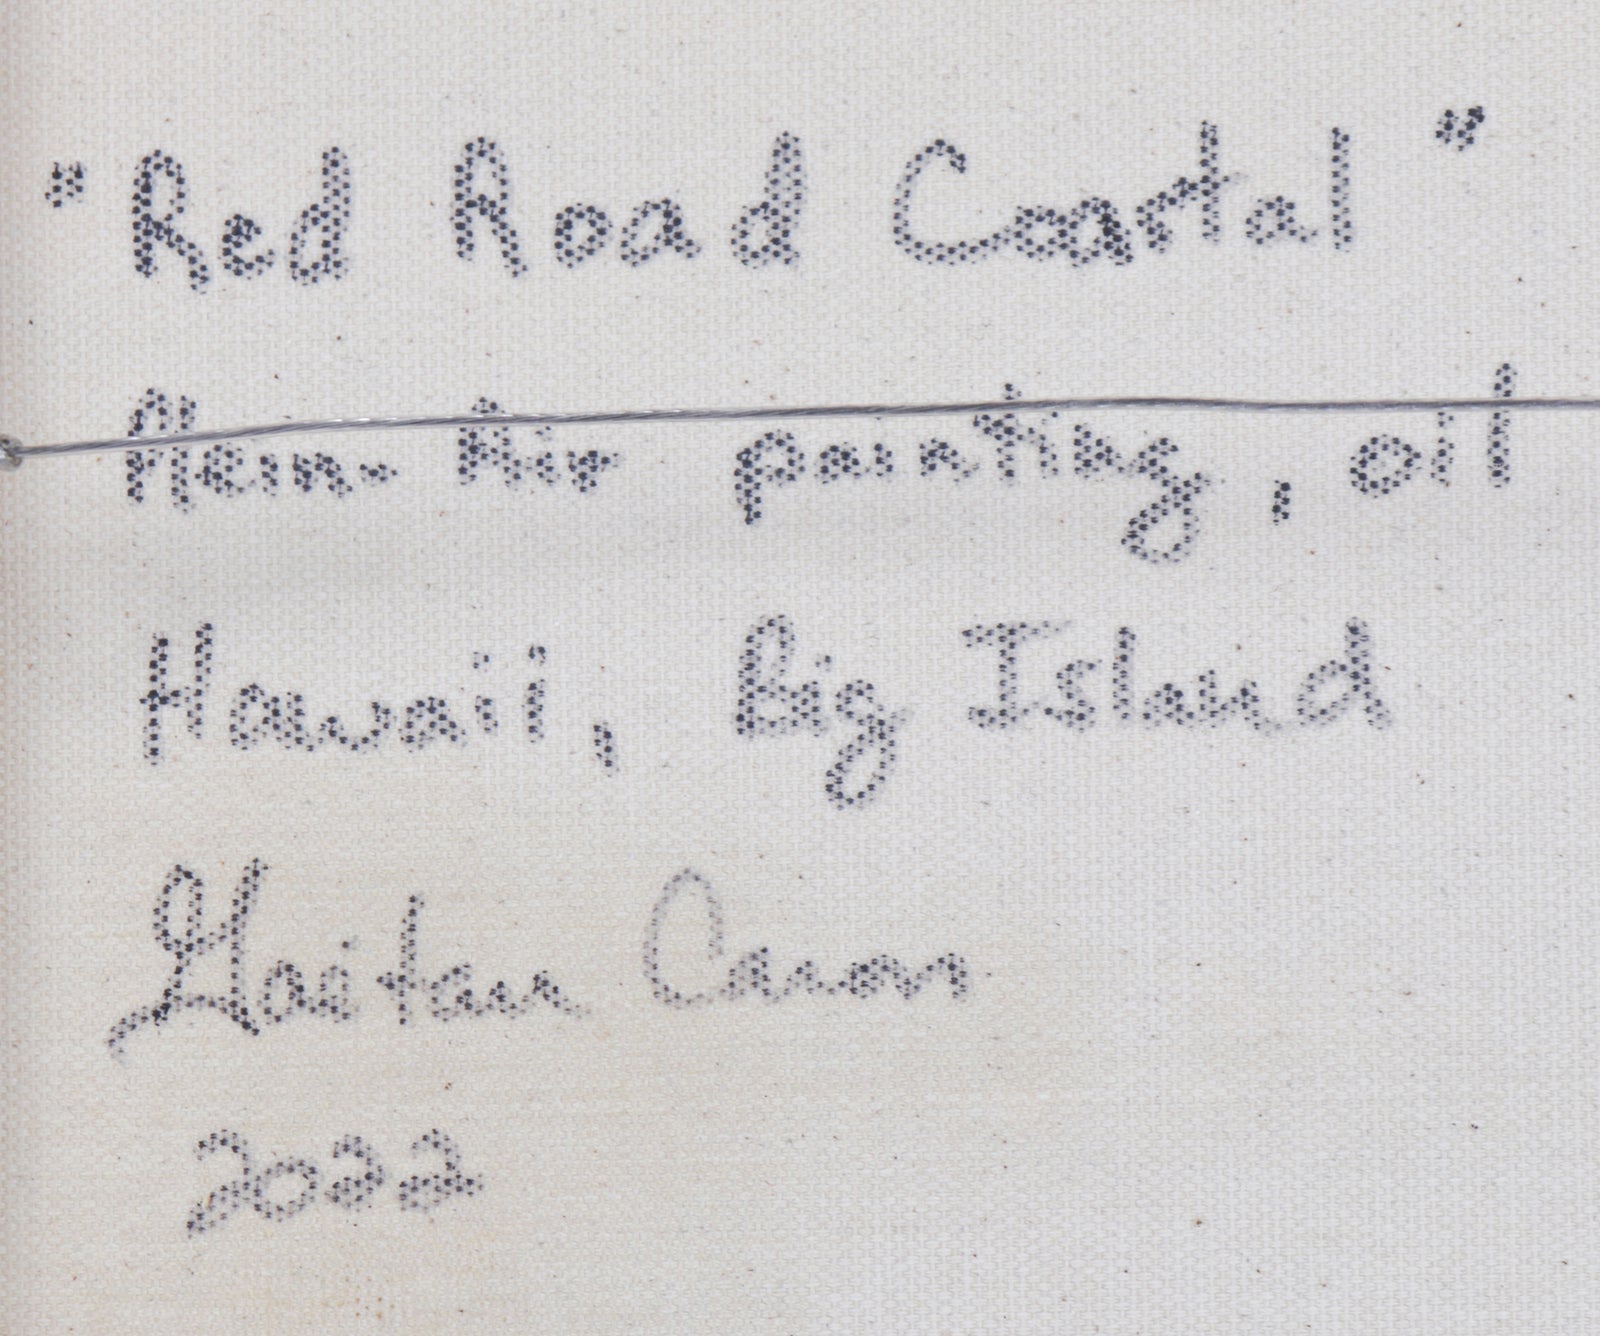 "Red Road Coastal"
Plein-Air painting, oil
Hawaii, Big Island
2022